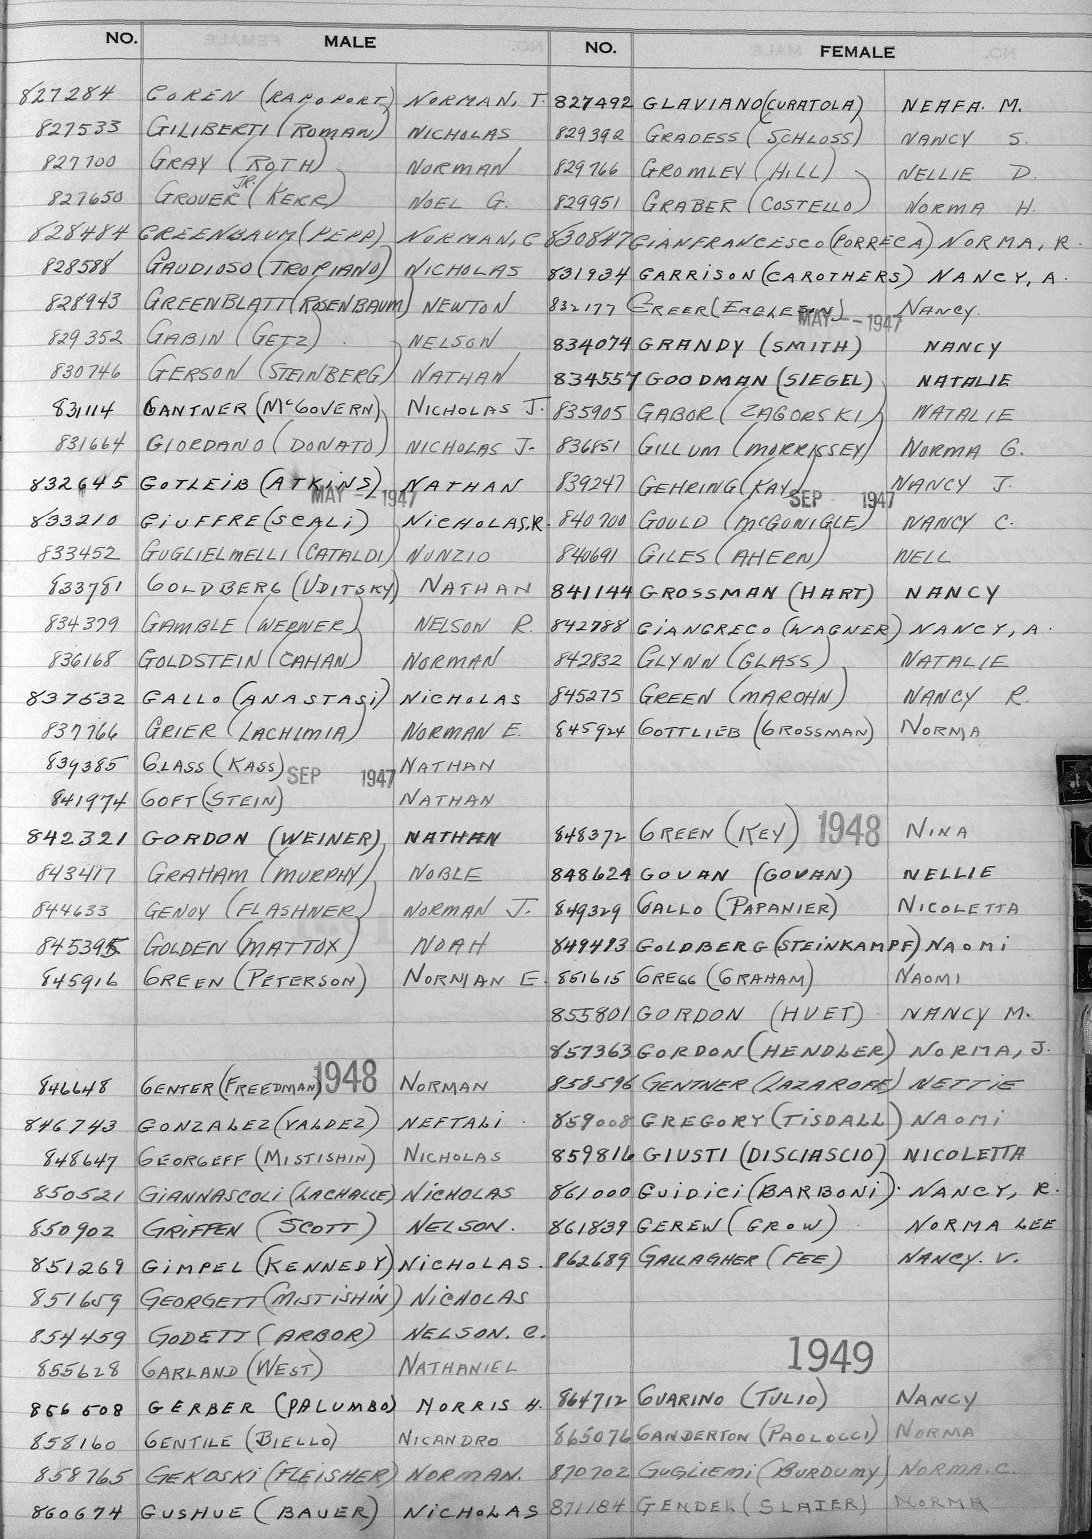 NO. MALE NO. FEMALE
827284 GOREN (RAPOPORT) NORMAN, T. 827492 GLAVIANO (CURATOLA) NEAFA. M.
827533 GILIBERTI (ROMAN) NICHOLAS 829392 GRADESS (SCHLOSS) NANCY S.
827700 GRAY (ROTH) NORMAN 829766 GROMLEY (HILL) NELLIE D.
827650 GROVER JR. (KERR) NOEL G. 829951 GRABER (COSTELLO) NORMA H.
828484 GREENBAUM (PEPP) NORMAN, C 830847 GIANFRANCESCO (PORRECA) NORMA, R.
828588 GAUDIOSO (TROPIANO) NICHOLAS 831934 GARRISON (CAROTHERS) NANCY, A.
828943 GREENBLATT (ROSENBAUM) NEWTON 832177 GREER (EAGLESON) NANCY.
MAY - - 1947
829352 GABIN (GETZ) NELSON 834074 GRANDY (SMITH) NANCY
830746 GERSON (STEINBERG) NATHAN 834557 GOODMAN (SIEGEL) NATALIE
831114 GANTNER (McGOVERN) NICHOLAS J. 835905 GABOR (ZAGORSKI) NATALIE
831664 GIORDANO (DONATO) NICHOLAS J. 836851 GILLUM (MORRISSEY) NORMA G.
832645 GOTLEIB (ATKINS) NATHAN 839247 GEHRING (KAY) NANCY J.
MAY - 1947 SEP 1947
833210 GIUFFRE (SCALI) NICHOLAS.R. 840700 GOULD (McGONIGLE) NANCY C.
833452 GUGLIELMELLI (CATALDI) NUNZIO 840691 GILES (AHERN) NELL
833781 GOLDBERG (UDITSKY) NATHAN 841144 GROSSMAN (HART) NANCY
834379 GAMBLE (WERNER) NELSON R. 842788 GIANGRECO (WAGNER) NANCY, A.
836168 GOLDSTEIN (CAHAN) NORMAN 842832 GLYNN (GLASS) NATALIE
837532 GALLO (ANASTASI) NICHOLAS 845275 GREEN (MAROHN) NANCY R.
837766 GRIER (LACHIMIA) NORMAN E. 845924 GOTTLIEB (GROSSMAN) NORMA
839385 GLASS (KASS) NATHAN
SEP 1947
841974 GOFT (STEIN) NATHAN
842321 GORDON (WEINER) NATHAN 848372 GREEN (KEY) 1948 NINA
843417 GRAHAM (MURPHY) NOBLE 848624 GOVAN (GOVAN) NELLIE
844633 GENOY (FLASHNER) NORMAN J. 849329 GALLO (PAPANIER) NICOLETTA
845395 GOLDEN (MATTOX) NOAH 849493 GOLDBERG (STEINKAMPF) NAOMI
845916 GREEN (PETERSON) NORMAN E. 851615 GREGG (GRAHAM) NAOMI
855801 GORDON (HUET) NANCY M.
857363 GORDON (HENDLER) NORMA, J.
846648 GENTER (FREEDMAN) 1948 NORMAN 858596 GENTNER (LAZAROFF) NETTIE
846743 GONZALEZ (VALDEZ) NEFTALI 859008 GREGORY (TISDALL) NAOMI
848647 GEORGEFF (MISTISHIN) NICHOLAS 859816 GIUSTI (DISCIASCIO) NICOLETTA
850521 GIANNASCOLI (LACHALLE) NICHOLAS 861000 GUIDICI (BARBONI). NANCY, R.
850902 GRIFFEN (SCOTT) NELSON. 861839 GEREW (GROW) NORMA LEE
851269 GIMPEL (KENNEDY) NICHOLAS. 862689 GALLAGHER (FEE) NANCY. V.
851659 GEORGETT (MISTISHIN) NICHOLAS
854459 GODETT (ARBOR) NELSON. C.
1949
855628 GARLAND (WEST) NATHANIEL
856508 GERBER (PALUMBO) NORRIS H. 864712 GUARINO (TULIO) NANCY
858160 GENTILE (BIELLO) NICANDRO 865076 GANDERTON (PAOLOCCI) NORMA
858765 GEKOSKI (FLEISHER) NORMAN. 870702 GUGLIEMI (BURDUMY) NORMA.C.
860674 GUSHUE (BAUER) NICHOLAS 871184 GENDEL (SLATER) NORMA